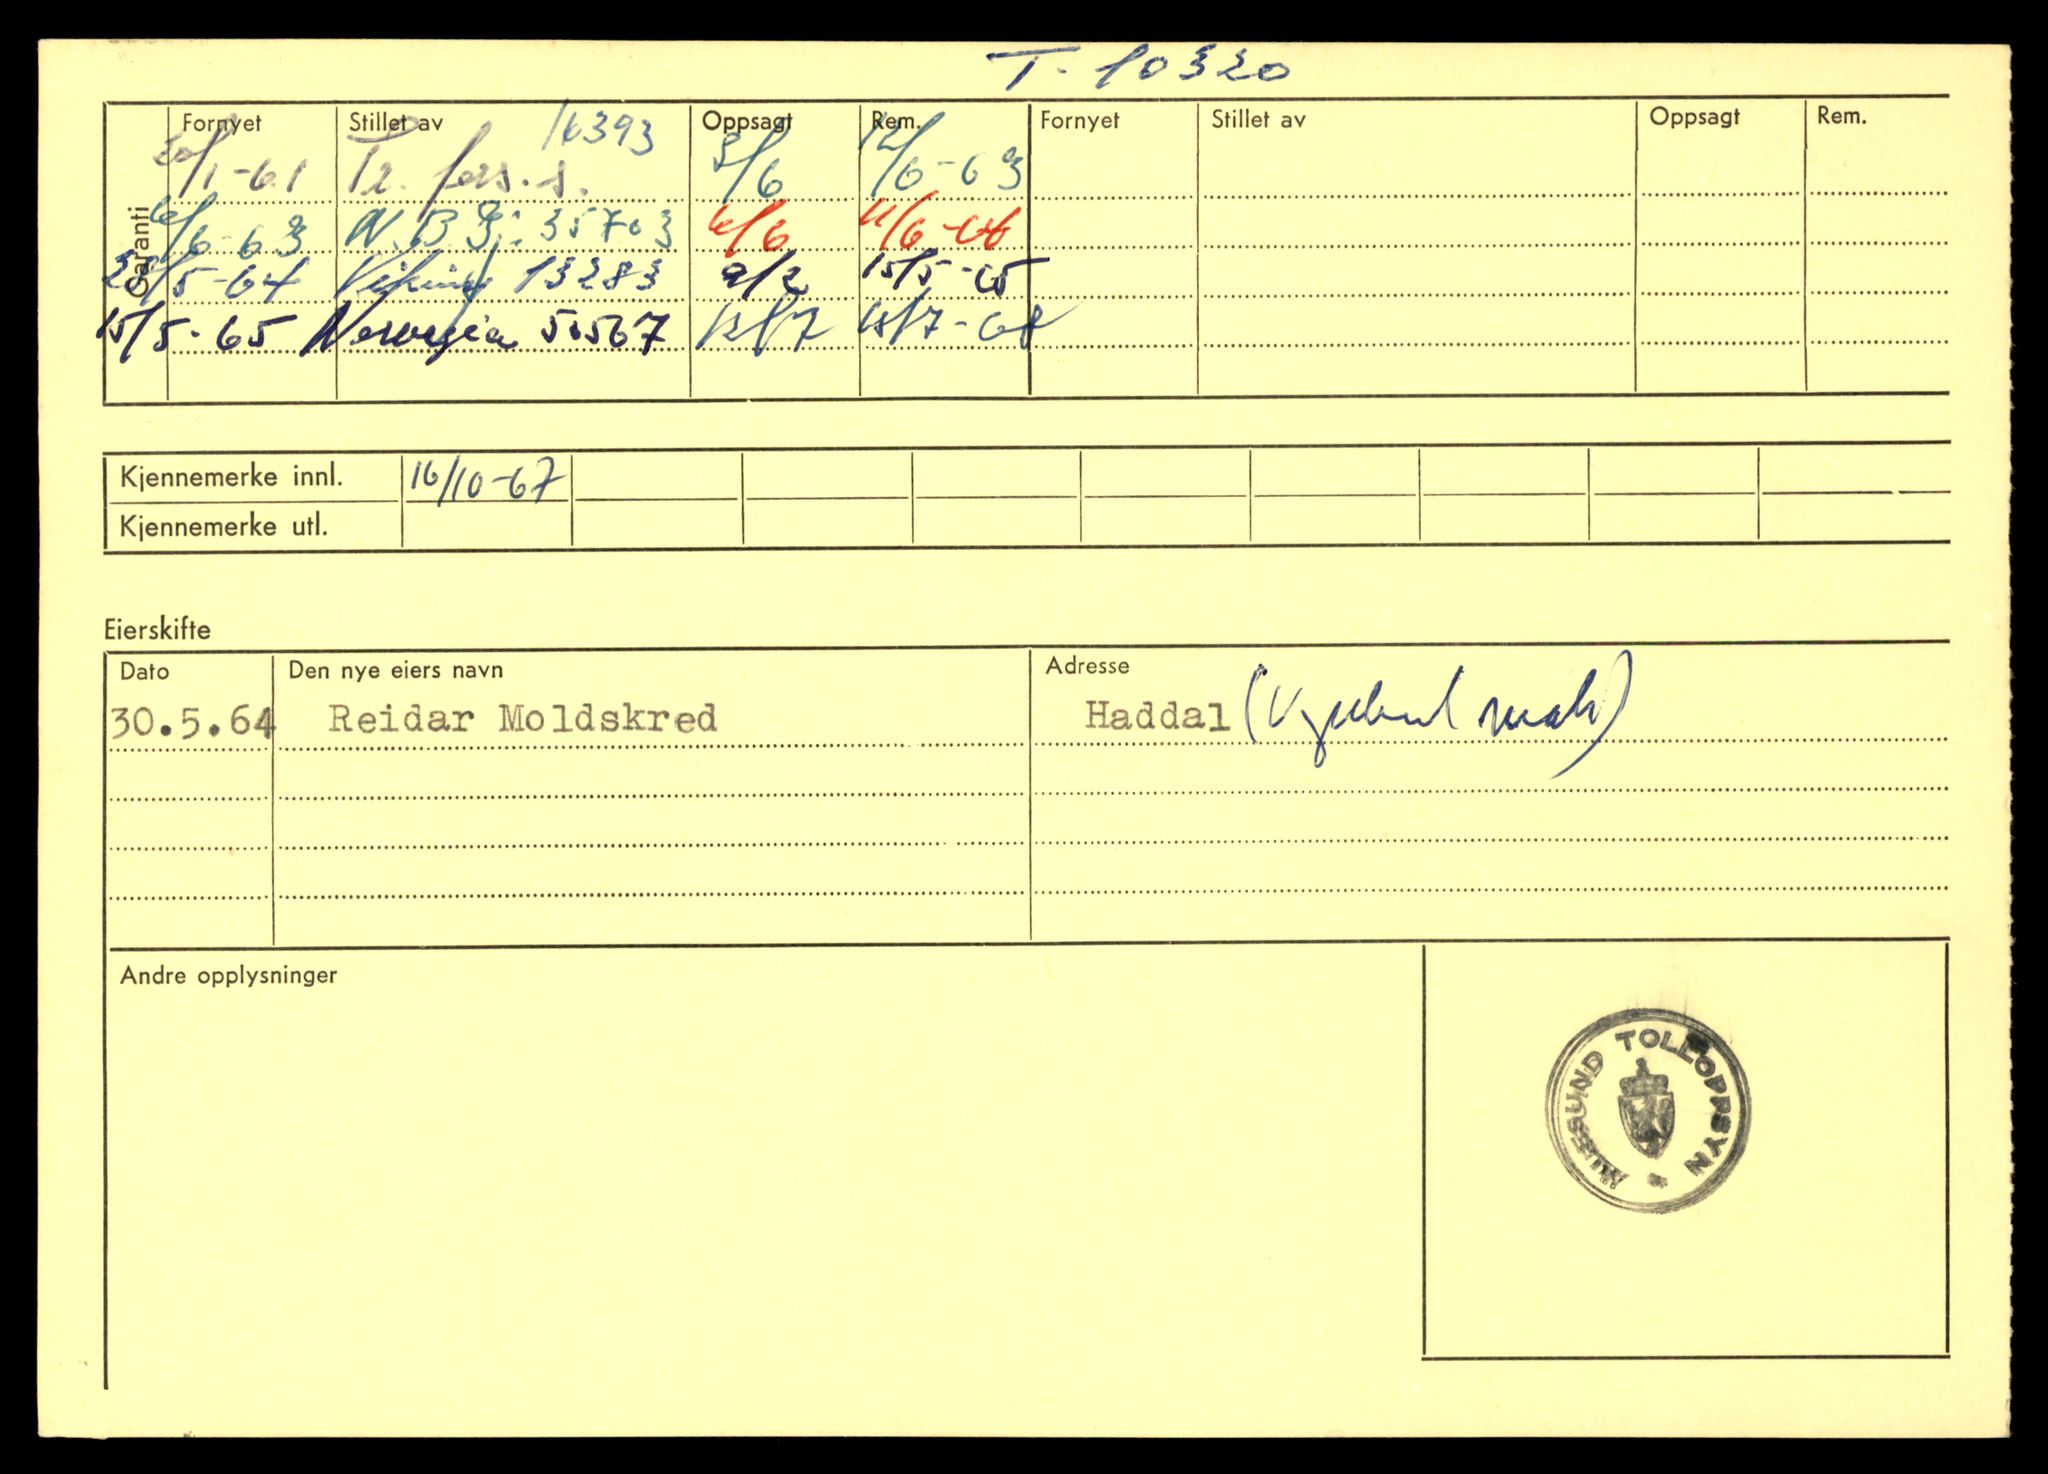 T. 10320
Garanti
Fornyet Stillet av Oppsagt Rem. Fornyet Stillet av Oppsagt Rem.
16393
20/1-61 Tr. fors. s. 5/6 12/6-63
6/6-63 N.B.G. 35703 6/6 11/6-64
/5-64 Viking 13283 9/2 15/5-65
15/5-65 Norvegia 50567 12/7 18/7-68
Kjennemerke innl. 16/10-67
Kjennemerke utl.
Eierskifte
Dato Den nye eiers navn Adresse
30.5.64 Reidar Moldskred Haddal
Andre opplysninger
ÅLESUND TOLLOPPSYN